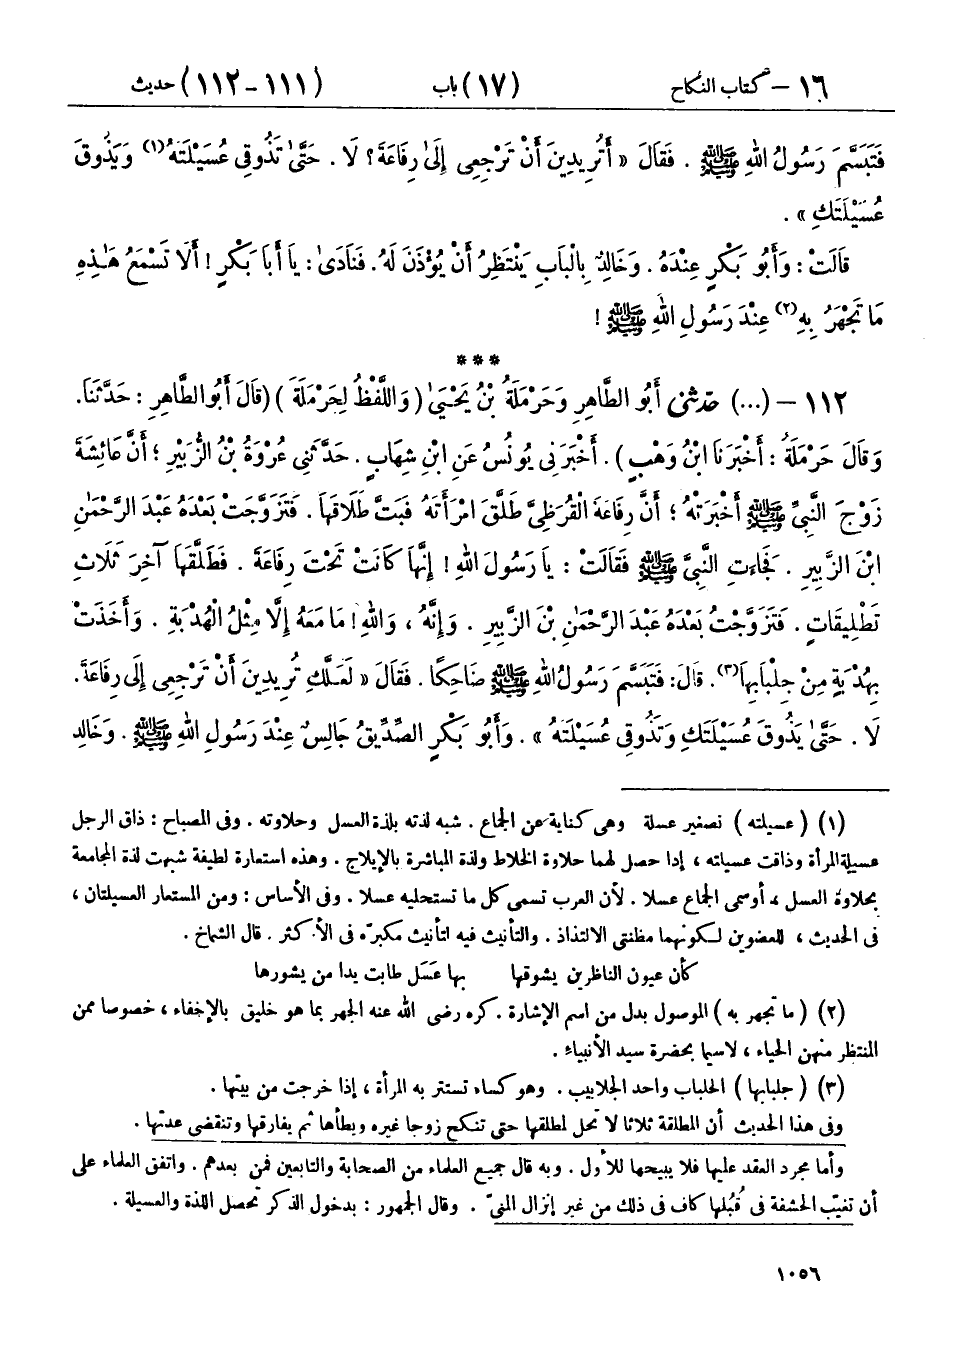 ١٦ – كتاب النكاح (١٧) باب (١١١-١١٢) حديث
فَتَبَسَّمَ رَسُولُ اللهِ ﷺ . فَقَالَ « أَتُرِيدِينَ أَنْ تَرْجِعِى إِلَىٰ رِفَاعَةَ ؟ لَا . حَتَّىٰ تَذُوقِى عُسَيْلَتَهُ(١) وَيَذُوقَ
عُسَيْلَتَكِ » .
قَالَتْ : وَأَبُو بَكْرٍ عِنْدَهُ . وَخَالِدٌ بِالْبَابِ يَنْتَظِرُ أَنْ يُؤْذَنَ لَهُ . فَنَادَىٰ : يَا أَبَا بَكْرٍ ! أَلَا تَسْمَعُ هَٰذِهِ
مَا تَجْهَرُ بِهِ(٢) عِنْدَ رَسُولِ اللهِ ﷺ !
***
١١٢ – (...) حدثنى أَبُو الطَّاهِرِ وَحَرْمَلَةُ بْنُ يَحْيَىٰ ( وَاللَّفْظُ لِحَرْمَلَةَ ) ( قَالَ أَبُو الطَّاهِرِ : حَدَّثَنَا .
وَقَالَ حَرْمَلَةُ : أَخْبَرَنَا ابْنُ وَهْبٍ ) . أَخْبَرَنِى يُونُسُ عَنِ ابْنِ شِهَابٍ . حَدَّثَنِى عُرْوَةُ بْنُ الزُّبَيْرِ ؛ أَنَّ عَائِشَةَ
زَوْجَ النَّبِىِّ ﷺ أَخْبَرَتْهُ ؛ أَنَّ رِفَاعَةَ الْقُرَظِىَّ طَلَّقَ امْرَأَتَهُ فَبَتَّ طَلَاقَهَا . فَتَزَوَّجَتْ بَعْدَهُ عَبْدَ الرَّحْمَٰنِ
ابْنَ الزَّبِيرِ . فَجَاءَتِ النَّبِىَّ ﷺ فَقَالَتْ : يَا رَسُولَ اللهِ ! إِنَّهَا كَانَتْ تَحْتَ رِفَاعَةَ . فَطَلَّقَهَا آخِرَ ثَلَاثِ
تَطْلِيقَاتٍ . فَتَزَوَّجْتُ بَعْدَهُ عَبْدَ الرَّحْمَٰنِ بْنَ الزَّبِيرِ . وَإِنَّهُ ، وَاللهِ ! مَا مَعَهُ إِلَّا مِثْلُ الْهُدْبَةِ . وَأَخَذَتْ
بِهُدْبَةٍ مِنْ جِلْبَابِهَا(٣) . قَالَ : فَتَبَسَّمَ رَسُولُ اللهِ ﷺ ضَاحِكًا . فَقَالَ « لَعَلَّكِ تُرِيدِينَ أَنْ تَرْجِعِى إِلَى رِفَاعَةَ .
لَا . حَتَّىٰ يَذُوقَ عُسَيْلَتَكِ وَتَذُوقِى عُسَيْلَتَهُ » . وَأَبُو بَكْرٍ الصِّدِّيقُ جَالِسٌ عِنْدَ رَسُولِ اللهِ ﷺ . وَخَالِدُ
(١) ( عسيلته ) تصغير عسلة وهى كناية عن الجماع . شبه لذته بلذة العسل وحلاوته . وفى المصباح : ذاق الرجل
عسيلة المرأة وذاقت عسيلته ، إذا حصل لهما حلاوة الخلاط ولذة المباشرة بالإيلاج . وهذه استعارة لطيفة شبهت لذة المجامعة
بحلاوة العسل ، أو سمى الجماع عسلا . لأن العرب تسمى كل ما تستحليه عسلا . وفى الأساس : ومن المستعار العسيلتان ،
فى الحديث ، للعضوين لكونهما مظنتى الالتذاذ . والتأنيث فيه لتأنيث مكبره فى الأكثر . قال الشماخ .
كأن عيون الناظرين يشوقها بها عَسَل طابت يدا من يشورها
(٢) ( ما تجهر به ) الموصول بدل من اسم الإشارة . كره رضى الله عنه الجهر بما هو خليق بالإخفاء ، خصوصا ممن
المنتظر منهن الحياء ، لاسيما بحضرة سيد الأنبياء .
(٣) ( جلبابها ) الجلباب واحد الجلابيب . وهو كساء تستتر به المرأة ، إذا خرجت من بيتها .
وفى هذا الحديث أن المطلقة ثلاثا لا تحل لمطلقها حتى تنكح زوجا غيره ويطأها ثم يفارقها وتنقضى عدتها .
وأما مجرد العقد عليها فلا يبيحها للأول . وبه قال جميع العلماء من الصحابة والتابعين فمن بعدهم . واتفق العلماء على
أن تغييب الحشفة فى قُبُلها كاف فى ذلك من غير إنزال المنىّ . وقال الجمهور : بدخول الذكر تحصل اللذة والعسيلة .
١٠٥٦